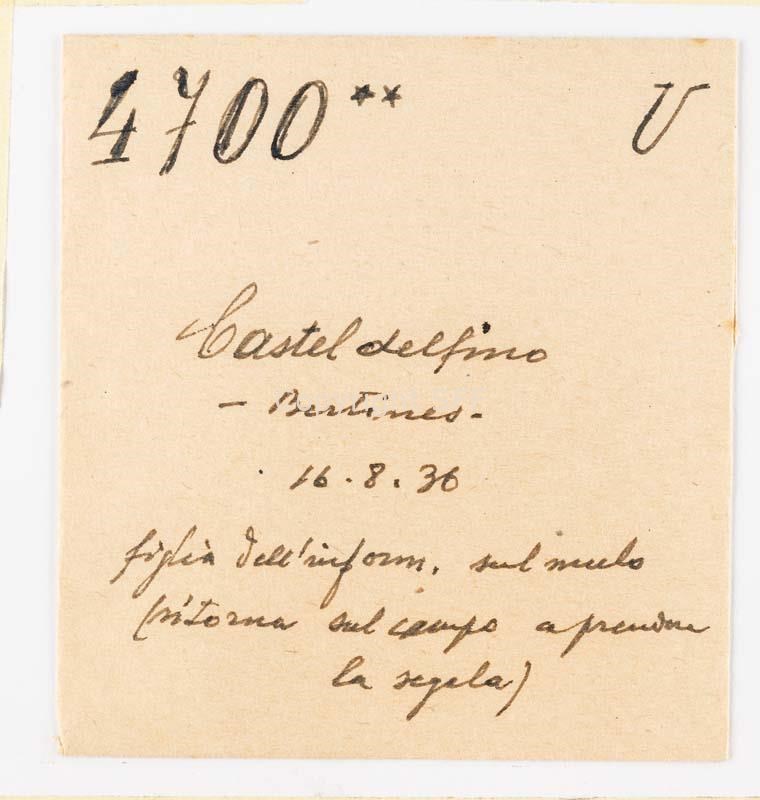 4700** U
Casteldelfino
- Bertines -
16.8.36
figlia dell'inform. sul mulo
(ritorna sul campo a prendere
la segala)